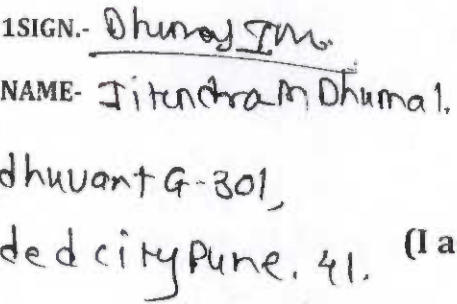 1SIGN.- Dhumal J.M.
NAME- Jitendra M Dhumal.
dhuvant G-301,
ded city Pune. 41. (I a